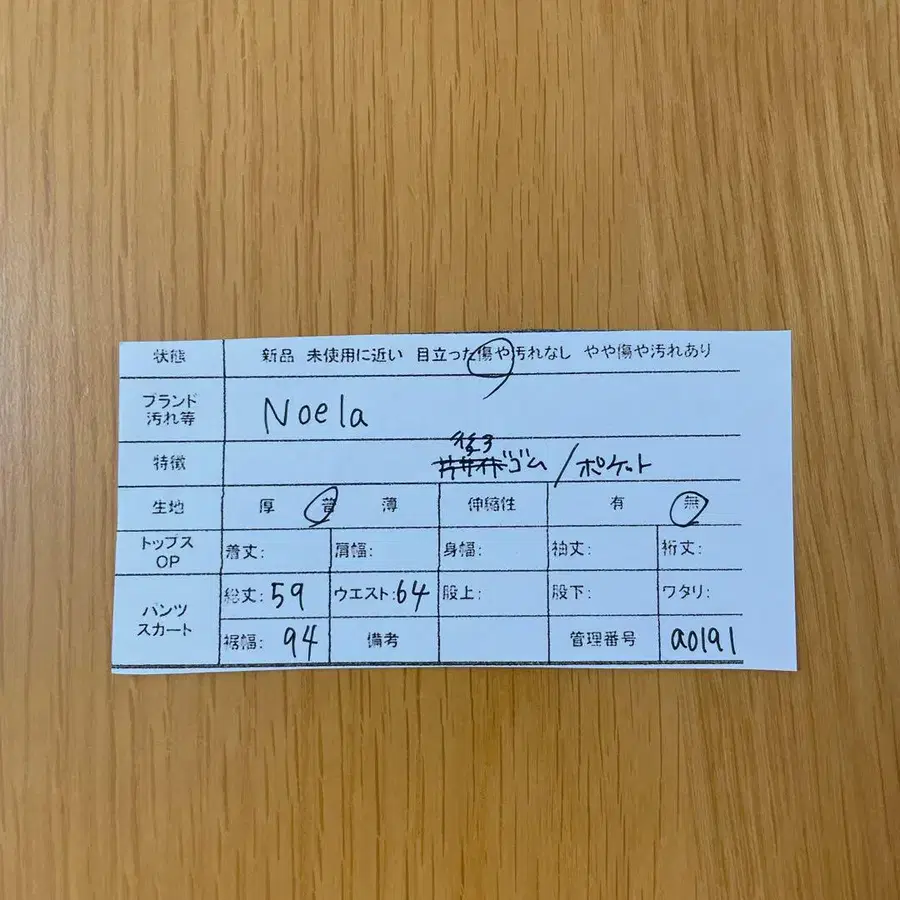 状態 新品 未使用に近い 目立った傷や汚れなし やや傷や汚れあり
ブランド
汚れ等 Noela
後ろ
特徴 ゴム / ポケット
生地 厚 普 薄 伸縮性 有 無
トップス
OP 着丈: 肩幅: 身幅: 袖丈: 裄丈:
パンツ
スカート 総丈: 59 ウエスト: 64 股上: 股下: ワタリ:
裾幅: 94 備考 管理番号 a0191